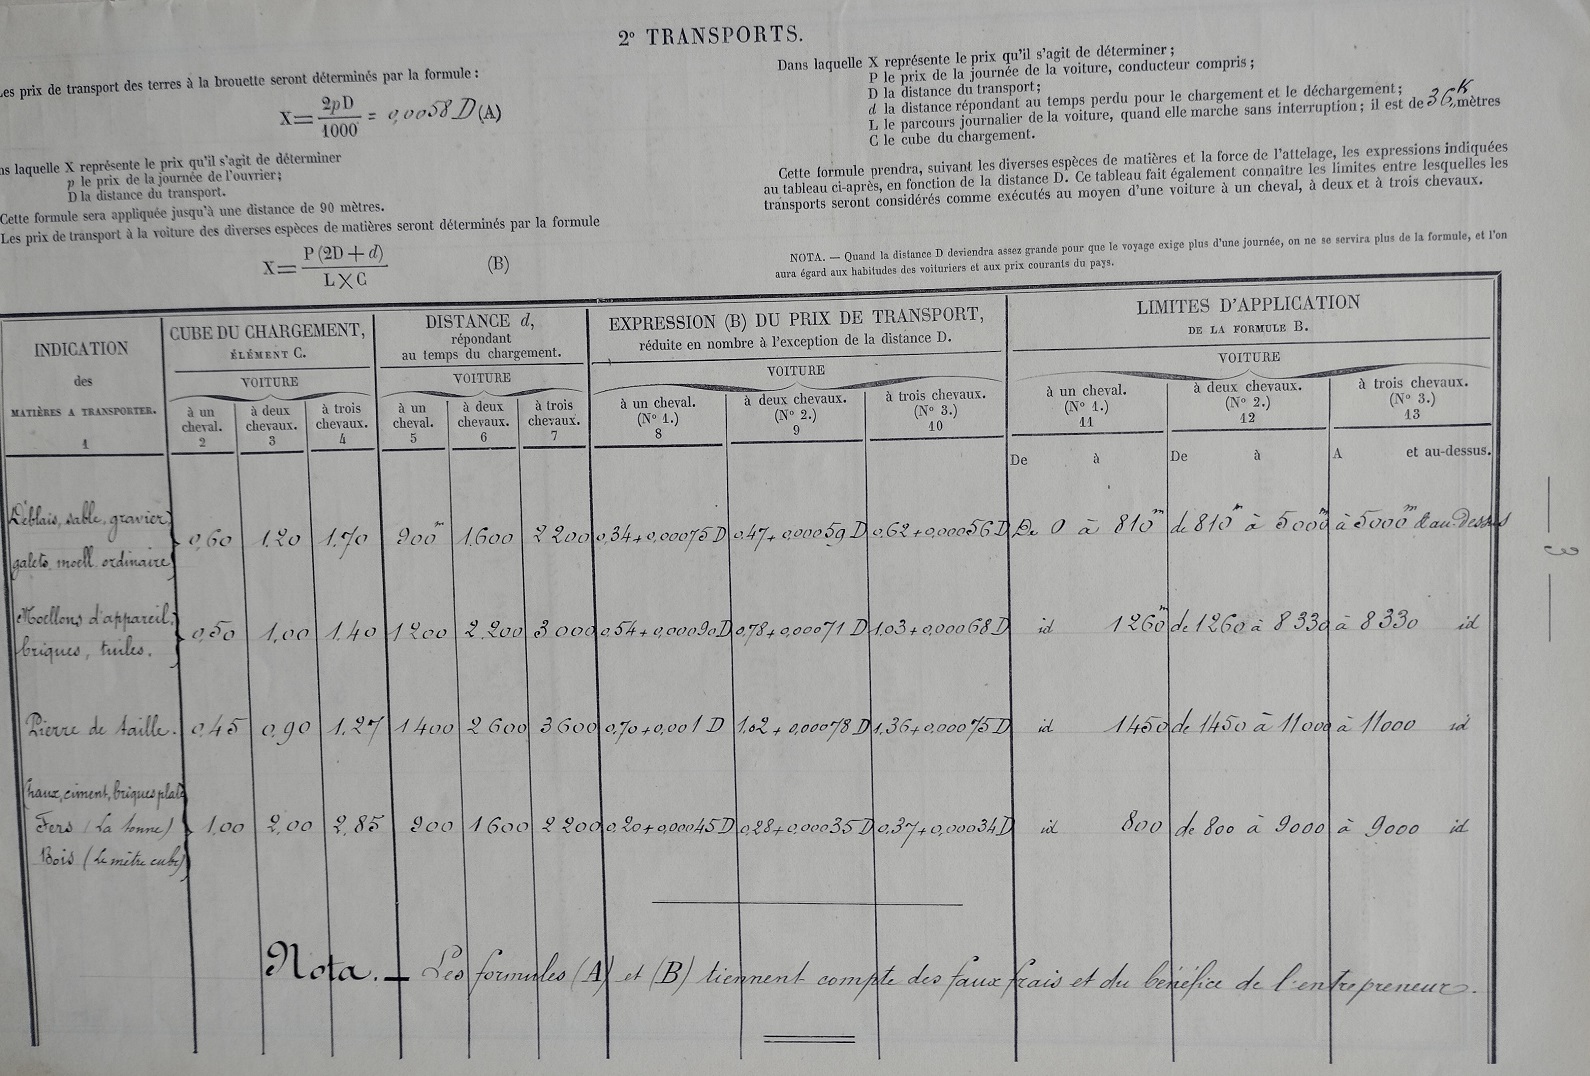 2° TRANSPORTS.
Les prix de transport des terres à la brouette seront déterminés par la formule :
X = 2pD / 1000 = 0,0058 D (A)
ns laquelle X représente le prix qu'il s'agit de déterminer
p le prix de la journée de l'ouvrier;
D la distance du transport.
Cette formule sera appliquée jusqu'à une distance de 90 mètres.
Les prix de transport à la voiture des diverses espèces de matières seront déterminés par la formule
X = P (2D + d) / L X C (B)
Dans laquelle X représente le prix qu'il s'agit de déterminer;
P le prix de la journée de la voiture, conducteur compris;
D la distance du transport;
d la distance répondant au temps perdu pour le chargement et le déchargement;
L le parcours journalier de la voiture, quand elle marche sans interruption; il est de 36K mètres
C le cube du chargement.
Cette formule prendra, suivant les diverses espèces de matières et la force de l'attelage, les expressions indiquées
au tableau ci-après, en fonction de la distance D. Ce tableau fait également connaître les limites entre lesquelles les
transports seront considérés comme exécutés au moyen d'une voiture à un cheval, à deux et à trois chevaux.
NOTA. — Quand la distance D deviendra assez grande pour que le voyage exige plus d'une journée, on ne se servira plus de la formule, et l'on
aura égard aux habitudes des voituriers et aux prix courants du pays.
INDICATION
des
MATIÈRES A TRANSPORTER.
1
CUBE DU CHARGEMENT,
ÉLÉMENT C.
VOITURE
à un cheval. 2
à deux chevaux. 3
à trois chevaux. 4
DISTANCE d,
répondant
au temps du chargement.
VOITURE
à un cheval. 5
à deux chevaux. 6
à trois chevaux. 7
EXPRESSION (B) DU PRIX DE TRANSPORT,
réduite en nombre à l'exception de la distance D.
VOITURE
à un cheval. (N° 1.) 8
à deux chevaux. (N° 2.) 9
à trois chevaux. (N° 3.) 10
LIMITES D'APPLICATION
DE LA FORMULE B.
VOITURE
à un cheval. (N° 1.) 11
à deux chevaux. (N° 2.) 12
à trois chevaux. (N° 3.) 13
De à De à A et au-dessus.
Déblais, sable, gravier,
galets, moell. ordinaire
0,60 1,20 1,70 900m 1,600 2 200 0,34+0,00075 D 0,47+0,00059 D 0,62+0,00056 D De 0 à 810m de 810m à 5000m à 5000m et au-dessus
Moellons d'appareil,
briques, tuiles.
0,50 1,00 1,40 1200 2,200 3 000 0,54+0,00090 D 0,78+0,00071 D 1,03+0,00068 D id 1260m de 1260 à 8330 à 8330 id
Pierre de taille. 0,45 0,90 1,27 1400 2600 3600 0,70+0,001 D 1,02+0,00078 D 1,36+0,00075 D id 1450 de 1450 à 11000 à 11000 id
Chaux, ciment, briques plates
Fers (La tonne)
Bois (Le mètre cube)
1,00 2,00 2,85 900 1600 2 200 0,20+0,00045 D 0,28+0,00035 D 0,37+0,00034 D id 800 de 800 à 9000 à 9000 id
Nota. — Les formules (A) et (B) tiennent compte des faux frais et du bénéfice de l'entrepreneur.
— 3 —